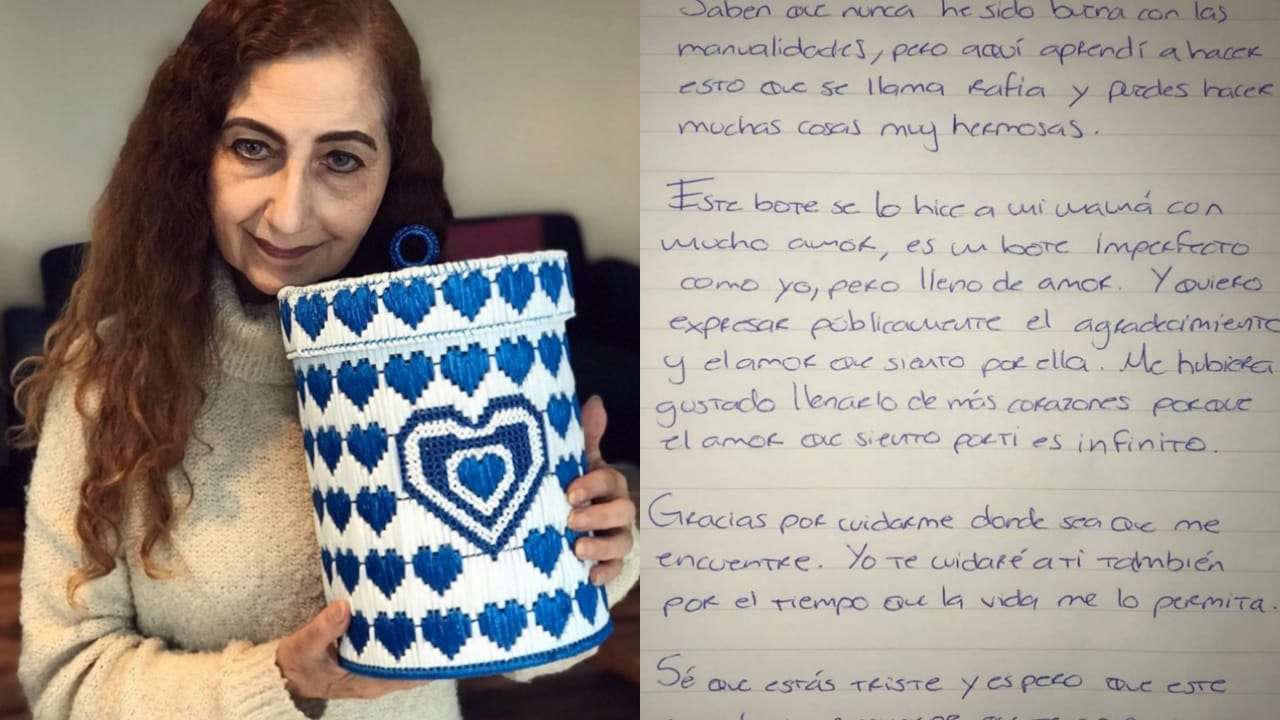 Saben que nunca he sido buena con las
manualidades, pero aquí aprendí a hacer
esto que se llama Rafia y puedes hacer
muchas cosas muy hermosas.
Este bote se lo hice a mi mamá con
mucho amor, es un bote imperfecto
como yo, pero lleno de amor. Y quiero
expresar públicamente el agradecimiento
y el amor que siento por ella. Me hubiera
gustado llenarlo de más corazones porque
el amor que siento por ti es infinito.
Gracias por cuidarme donde sea que me
encuentre. Yo te cuidaré a ti también
por el tiempo que la vida me lo permita.
Sé que estás triste y espero que este